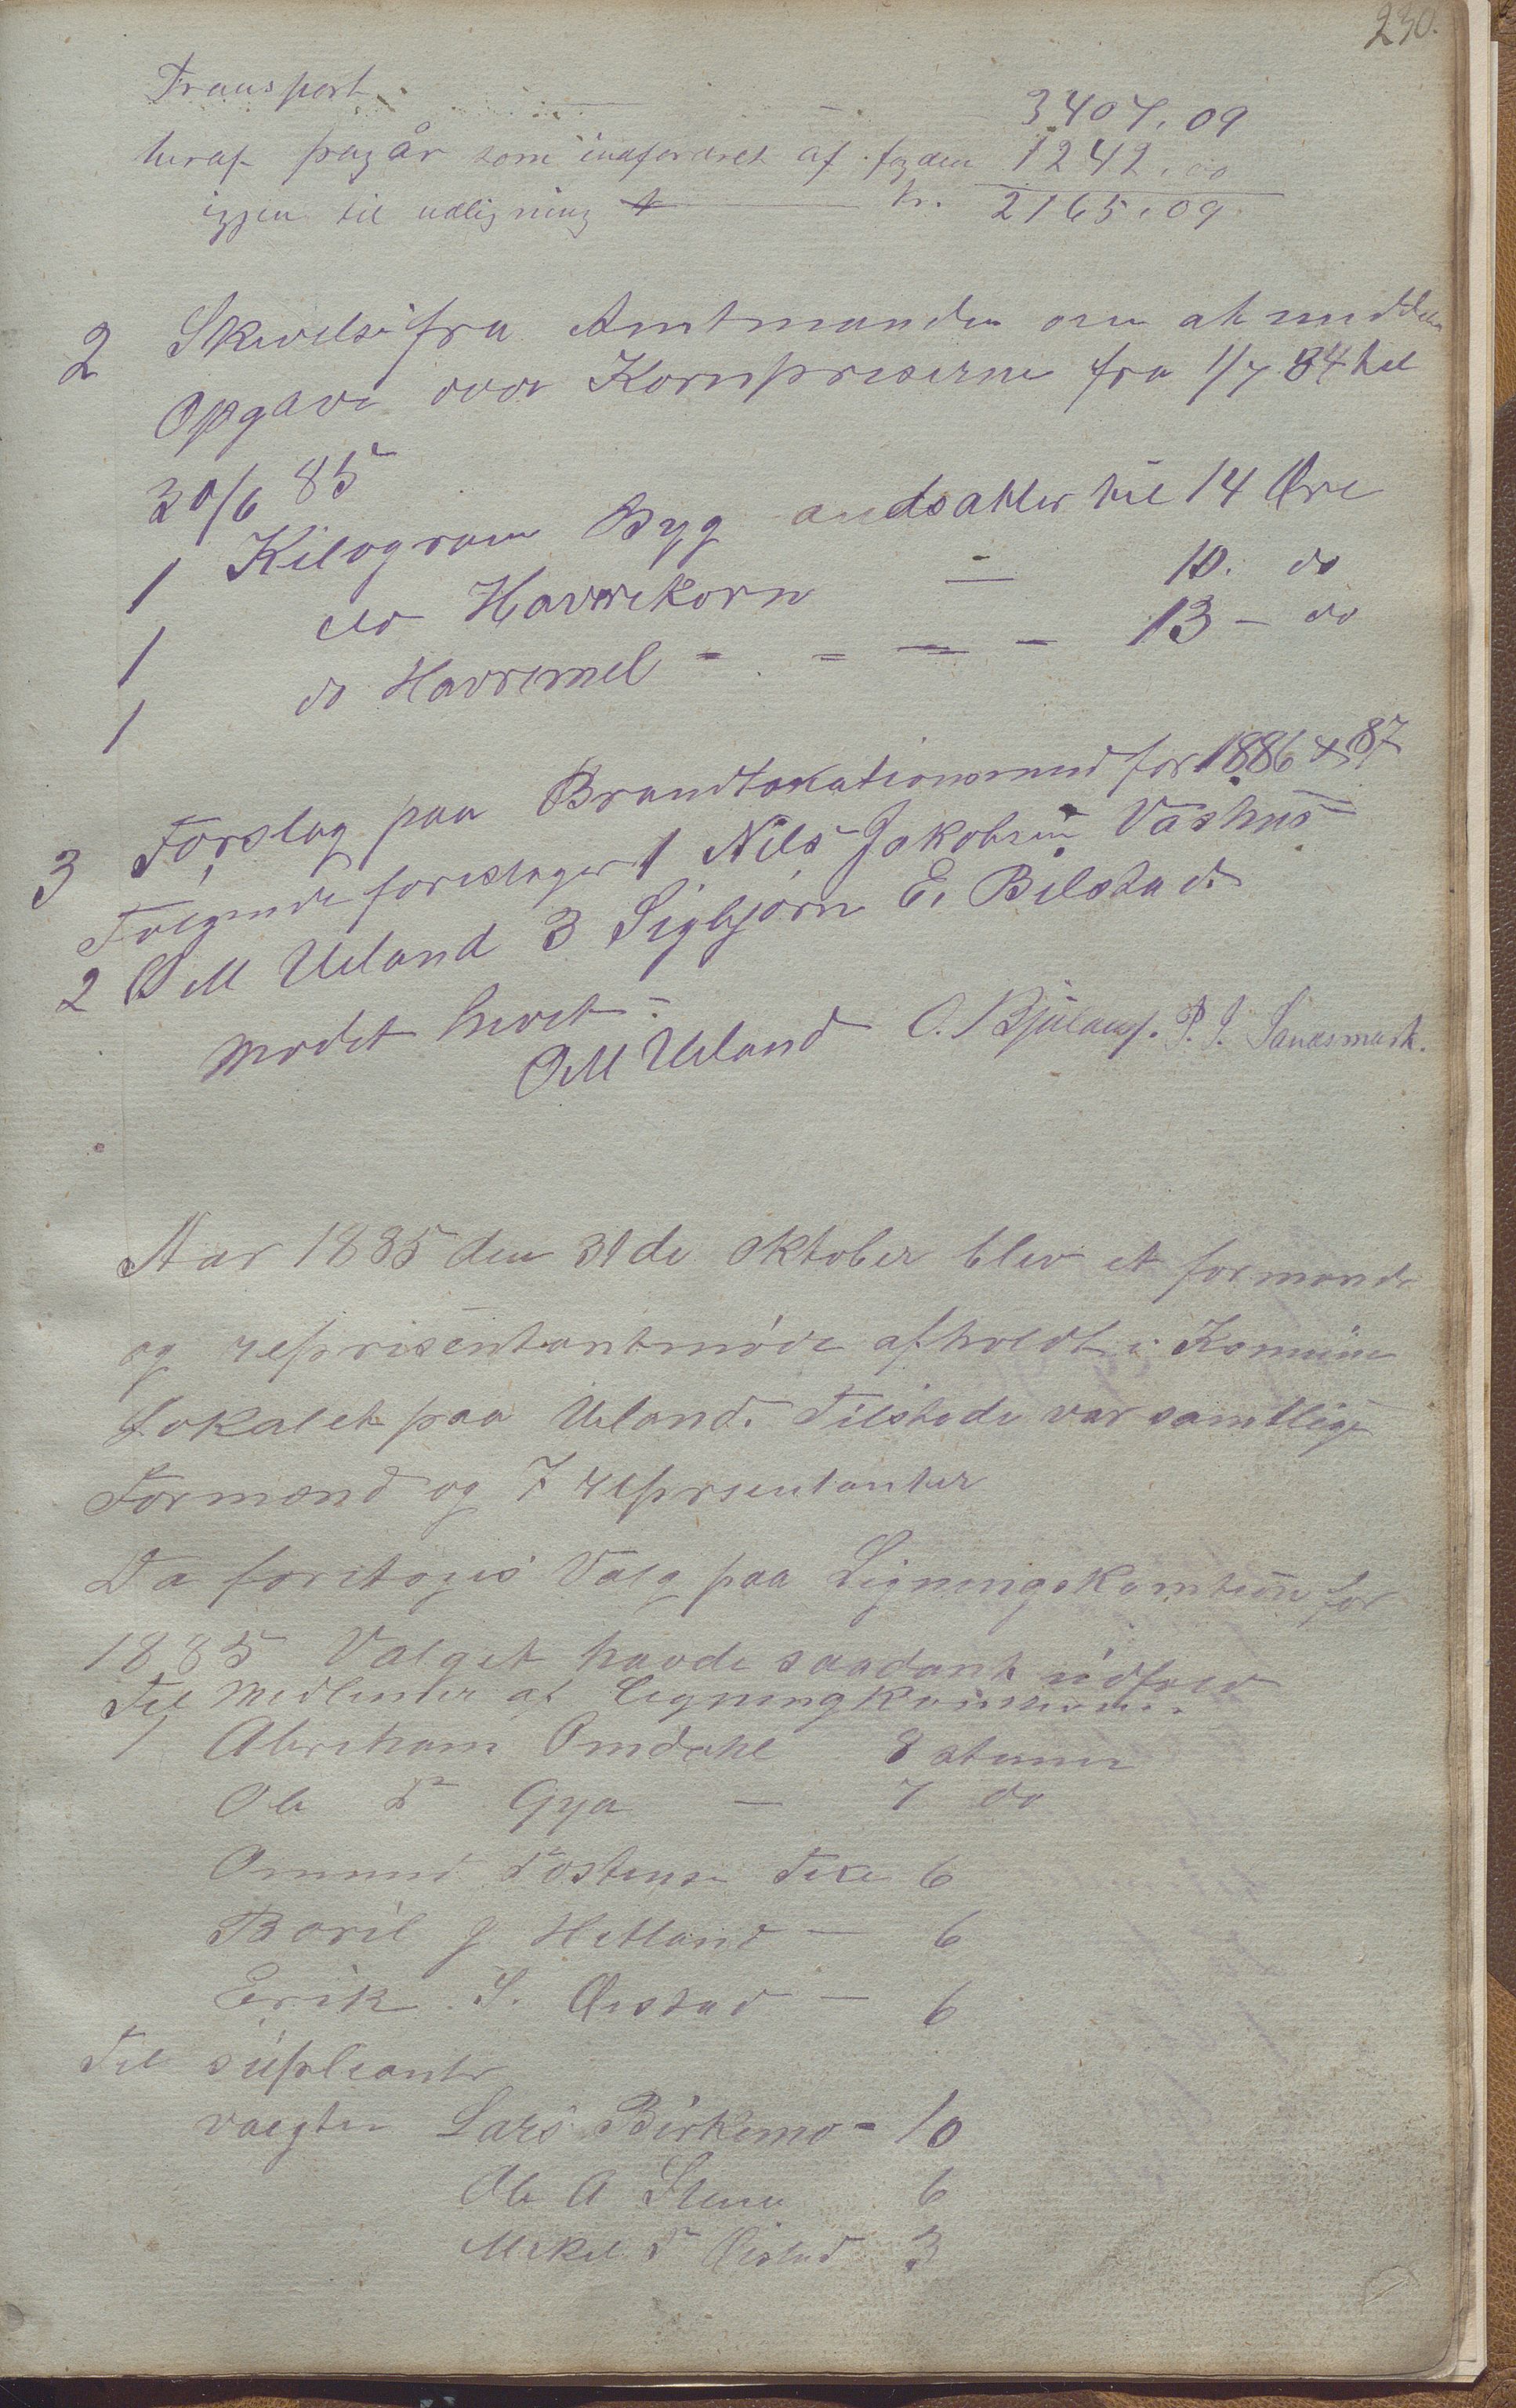 230.
Transport 3407.09
heraf pagår som indfordret af fogden 1242.00
igjen til udligning kr. 2165.09
2 Skrivelse fra Amtmanden om at meddele
Opgave over Kornpriserne fra 1/7 84 til
30/6 85
1 Kilogram Byg andsatter til 14 Øre
1 do Havrekorn — 10. do
1 do Havremel - - - - 13 - do
3 Forslag paa Brandtakationsmend for 1886 & 87
Følgende foreslager 1 Nils Jakobsen Vashus
2 O M Ueland 3 Sigbjørn E. Bilstad
Mødet hevet
O M Ueland O. Bjuland. P. J. Sandsmark.
Aar 1885 den 31de oktober blev et formands
og represēntantmøde afholdt i Komūne
Lokalet paa Ueland. Tilstede var samtlige
Formænd og 7 reprsentanter
Da foretoges Valg paa Ligningskomtion for
1885 Valget havde saadant údfald
Til Medlemer af ligningkomisionen.
1 Abreham Omdahl 8 stemer
Ole T Gya — 7 do
Omund Tostensen Eike 6
Boril G Hetland — 6
Erik S. Øistad — 6
Til súpleanter
valgtes Lars Birkemo - 10
Ole A Stene 6
Mikel T Øistad 3